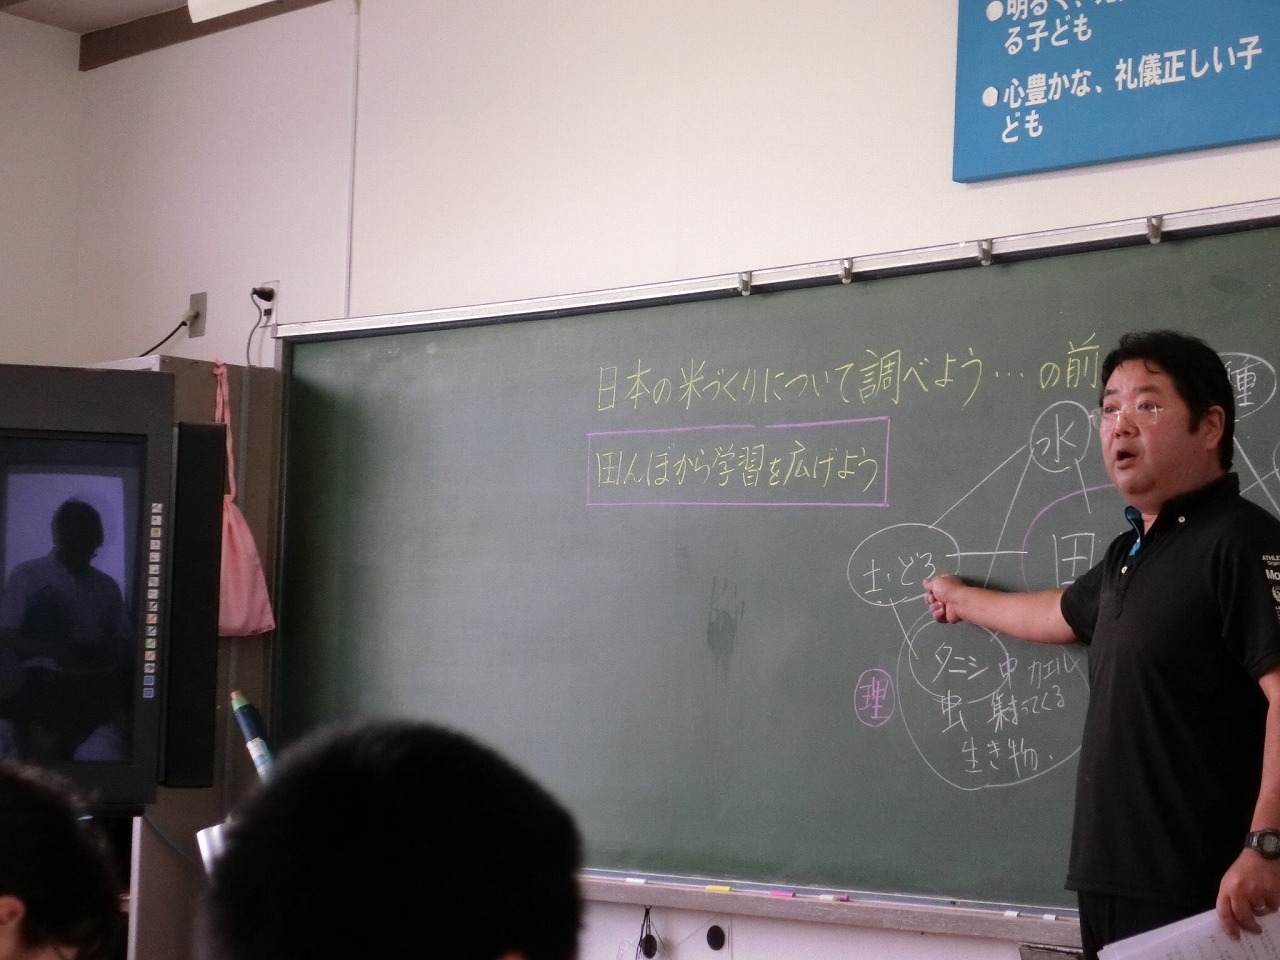 る子ども
●心豊かな、礼儀正しい子
ども
日本の米づくりについて調べよう…の前
田んぼから学習を広げよう
水
種
土・どろ
田
タニシ 中 カエル
虫 集まってくる
生き物.
理